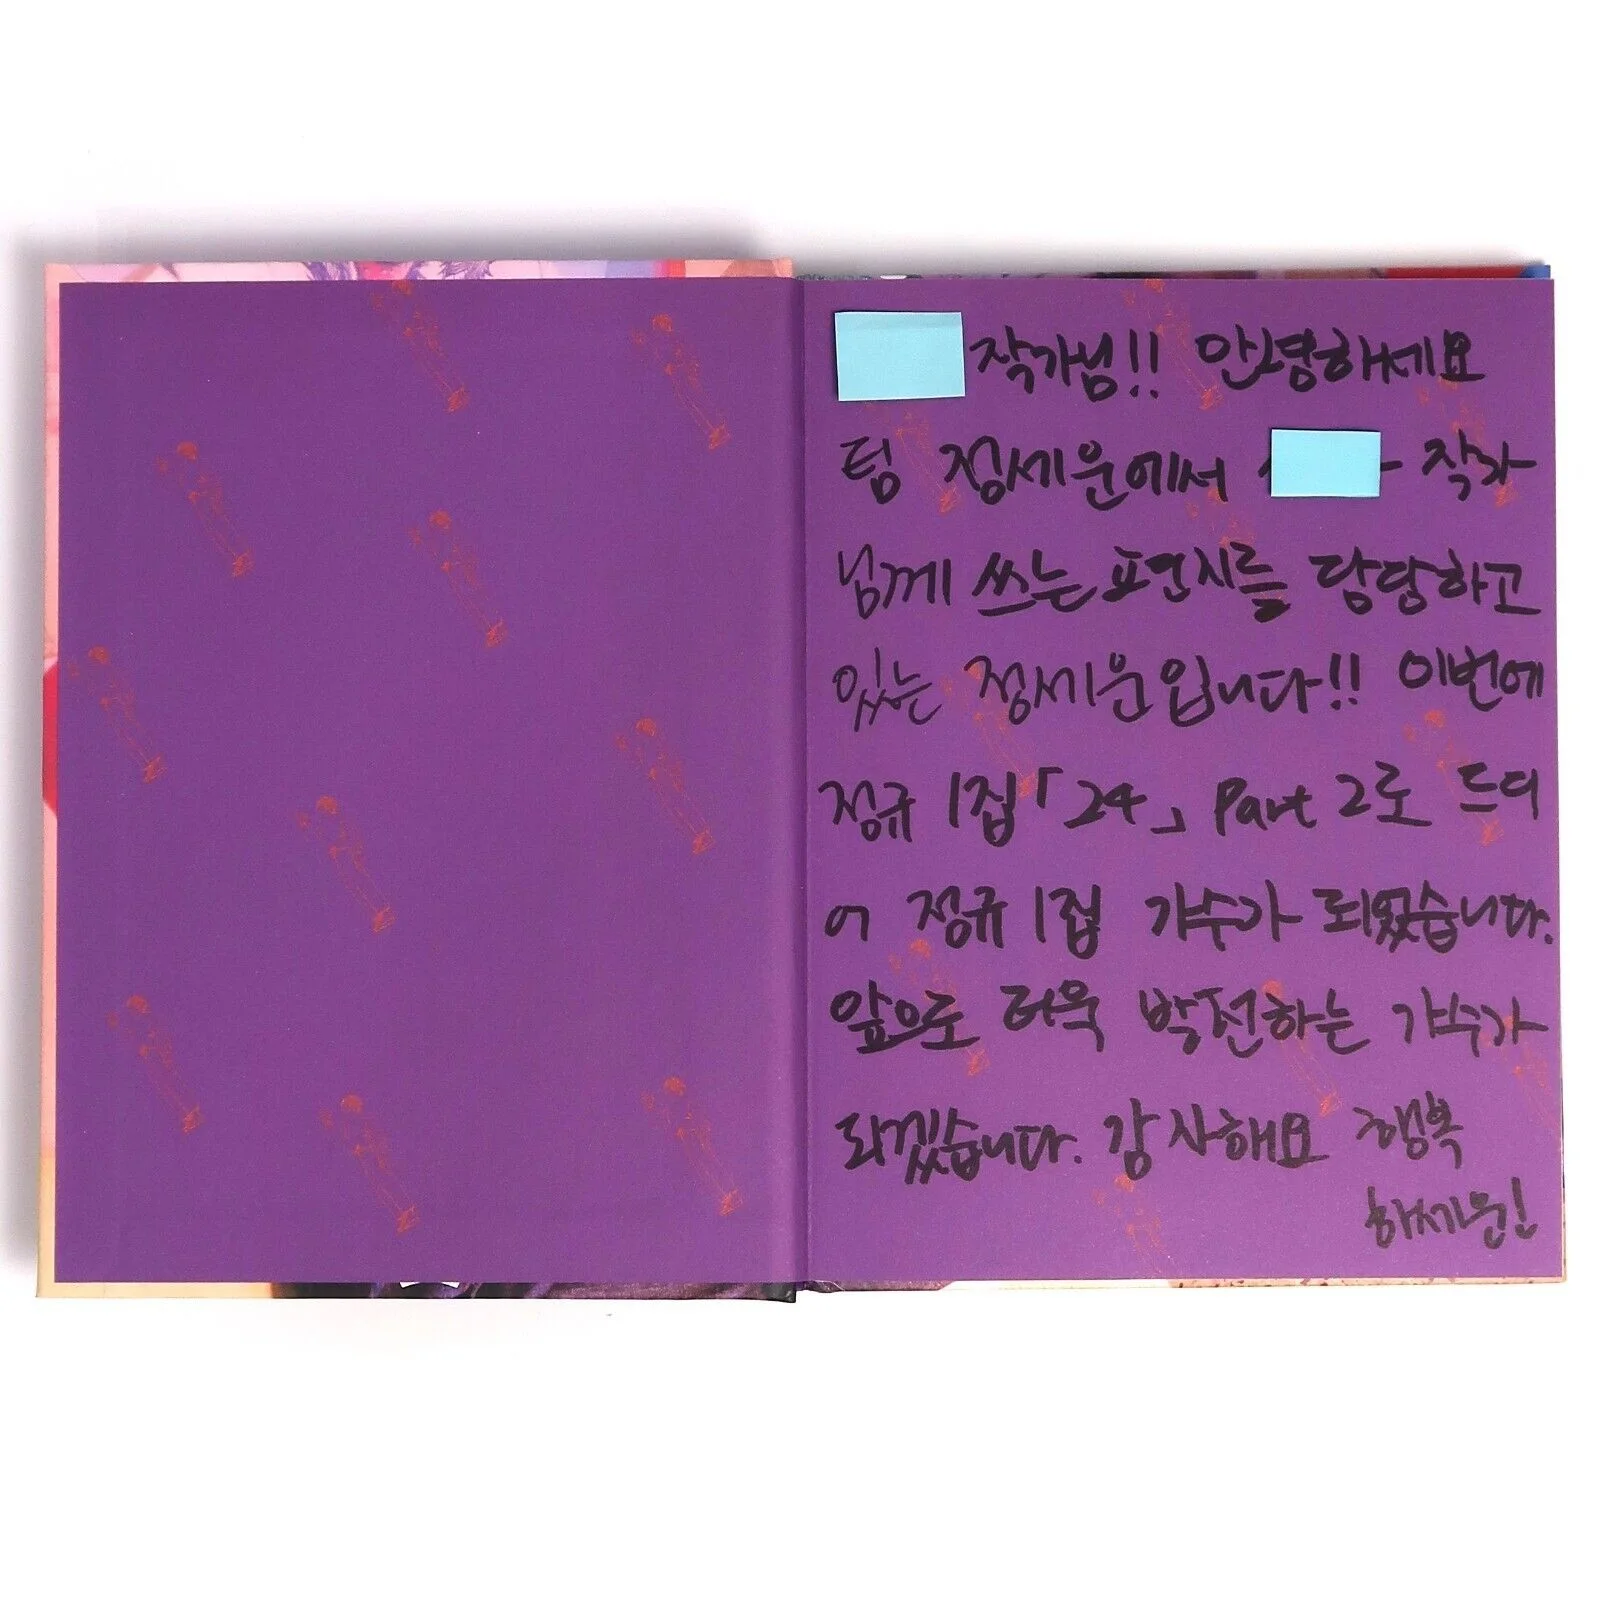 작가님!! 안녕하세요
팀 정세운에서 작가
님께 쓰는 편지를 담당하고
있는 정세운입니다!! 이번에
정규 1집「24」 Part 2로 드디
어 정규 1집 가수가 되었습니다.
앞으로 더욱 발전하는 가수가
되겠습니다. 감사해요 행복
하세운!